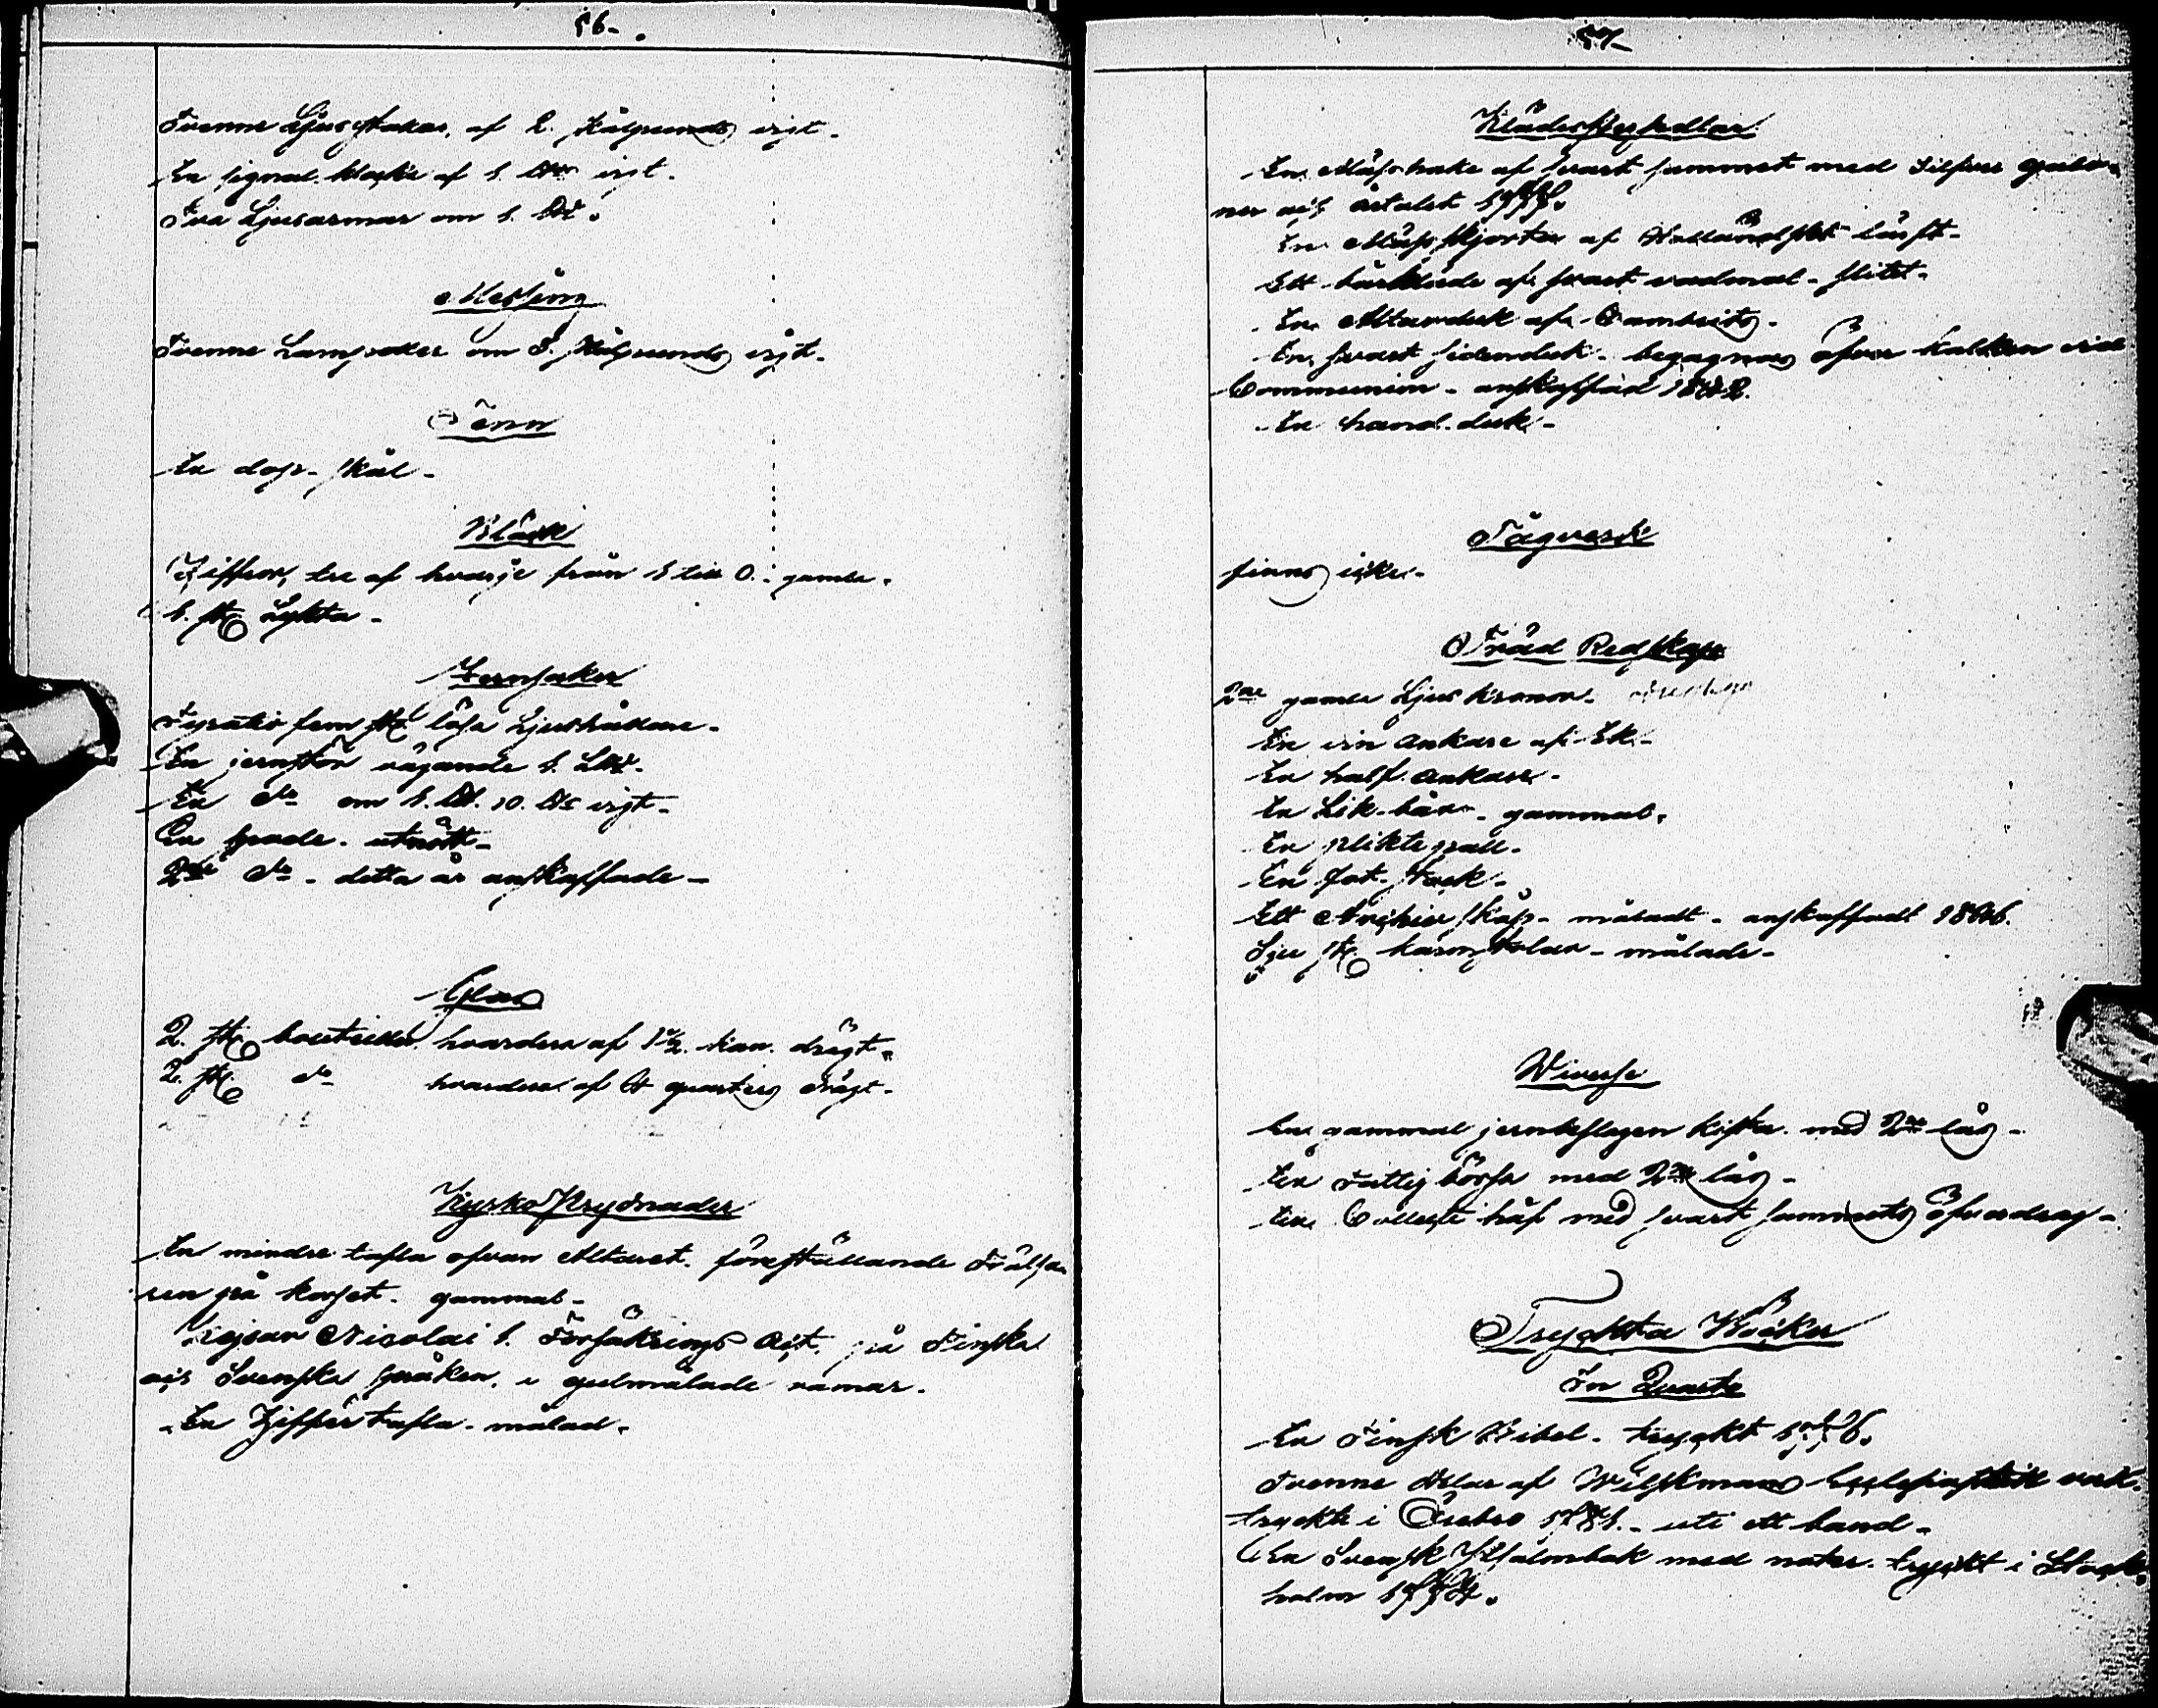 56.
Tvenne Ljusstakar, af 2. skålpunds vigt.
En signal. klocka af 1. vigt.
Två Ljusarmar om 1.
Messing
Tvenne Lampetter om 3. skålpunds vigt.
Tenn
En dop-skål-
Bläck
Ziffror, tre af hvarje från 1 till 0. gamla.
1. st. Lykta-
Jernsaker
Fyratio fem st. lösa Ljushållare-
En jernstör vägande 1.
En do om 1. 10. vigt-
En spade. utnött-
2ne do - detta år anskaffade-
Glas
2. st. bouteiller hvardera af 1½. kan. drägt-
2. st. do hvardera af quarters drägt-
Kyrko Prydnader
En mindre tafla ofvan Altaret. föreställande Frälsa
ren på korset. gammal-
Kejsar Nicolai 1. Försäkrings Act. på Finska
och Svenska språken. i gulmålade ramar.
En Ziffertafla. målad.
57
Klädespersedlar
En Mässhake af svart sammet med Silfver galo-
ner och årtalet
En Mässkjorta af Holländskt lärft-
Ett bårkläde af svart vadmal- slitet-
En Altarduk af Cambrits-
En svart sidenduk- begagnas öfver kalken vid
Communion- anskaffad 1842.
En hand.duk-
Tågverk
finns icke-
Träd Redskap
2ne gamla Ljus kronor-
En vin ankare af Ek-
En half. ankare-
En Lik-bår- gammal.
En pliktepall-
En fot-stock-
Ett Archiv skåp- måladt- anskaffadt 1846.
Sju st. karmstolar- målade-
Diverse
En gammal jernbeslagen kista. med 2ne lås-
En Fattigbössa med 2ne lås-
En Collecte håf med svart sammets öfverdrag-
Tryckta Böcker
In Quarto
En Finsk Bibel. tryckt 1776.
Tvenne delar af Wilskmans Ecclesiastik verk.
tryckte i Örebro 1781.- uti ett band-
En Svensk Psalmbok med noter. tryckt i Stock-
holm